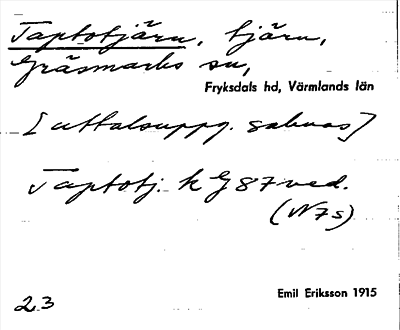 Taptotjärn, tjärn,
Gräsmarks sn,
Fryksdals hd, Värmlands län
[uttalsuppg. saknas]
Taptotj. k G 87 ved.
(N7s)
23
Emil Eriksson 1915